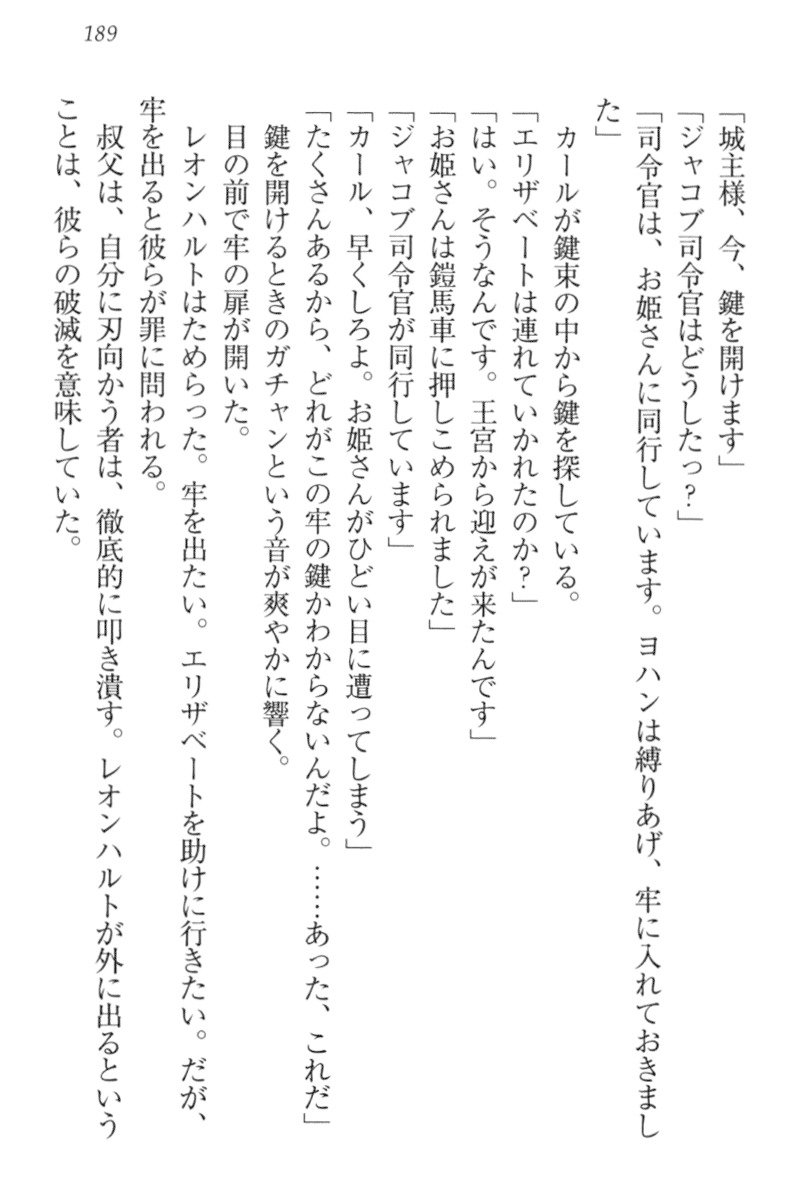 189
「城主様、今、鍵を開けます」
「ジャコブ司令官はどうしたっ？」
「司令官は、お姫さんに同行しています。ヨハンは縛りあげ、牢に入れておきまし
た」
　カールが鍵束の中から鍵を探している。
「エリザベートは連れていかれたのか？」
「はい。そうなんです。王宮から迎えが来たんです」
「お姫さんは鎧馬車に押しこめられました」
「ジャコブ司令官が同行しています」
「カール、早くしろよ。お姫さんがひどい目に遭ってしまう」
「たくさんあるから、どれがこの牢の鍵かわからないんだよ。……あった、これだ」
　鍵を開けるときのガチャンという音が爽やかに響く。
　目の前で牢の扉が開いた。
　レオンハルトはためらった。牢を出たい。エリザベートを助けに行きたい。だが、
牢を出ると彼らが罪に問われる。
　叔父は、自分に刃向かう者は、徹底的に叩き潰す。レオンハルトが外に出るという
ことは、彼らの破滅を意味していた。